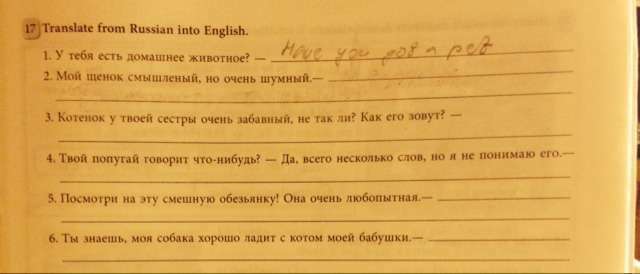 17 Translate from Russian into English.
1. У тебя есть домашнее животное? — Have you got a pet
2. Мой щенок смышленый, но очень шумный.—
3. Котенок у твоей сестры очень забавный, не так ли? Как его зовут? —
4. Твой попугай говорит что-нибудь? — Да, всего несколько слов, но я не понимаю его.—
5. Посмотри на эту смешную обезьянку! Она очень любопытная.—
6. Ты знаешь, моя собака хорошо ладит с котом моей бабушки.—